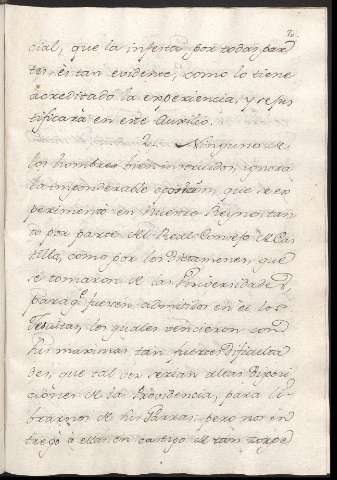 cial, que la infesta por todas par
tes, es tan evidente, como lo tiene
acreditado la experiencia, y se jus
tificará en este Auxilio.
2. Ninguno de
los hombres bien instruidos, ignora
la imponderable que se ex
perimentó en nuestro Reyno, tan
to por parte del Real Consejo de Cas
tilla, como por los Dictamenes, que
se tomaron de las Universidades,
para q.e fuesen admitidos en él los
Jesuitas, los quales vencieron con
sus maximas tan fuertes dificulta
des, que tal vez serían altas disposi
ciones de la Providencia, para li
brarnos de sus Garras; pero nos en
tregó á ellas en castigo de tan torpe